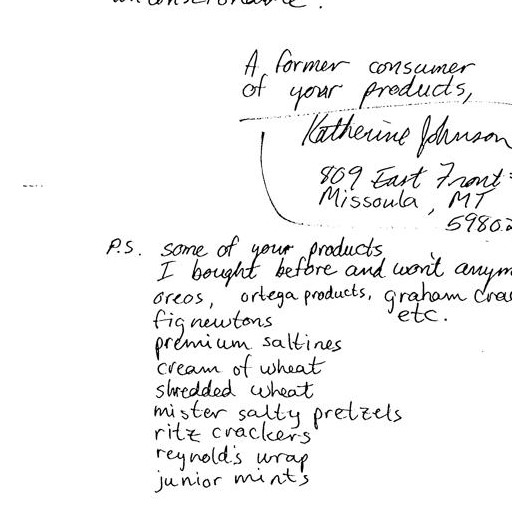 A former consumer
of your products,
Katherine Johnson
809 East Front
Missoula, MT
59802
P.S. some of your products
I bought before and won't
oreos, ortega products, graham
fig newtons etc.
premium saltines
cream of wheat
shredded wheat
mister salty pretzels
ritz crackers
reynold's wrap
junior mints